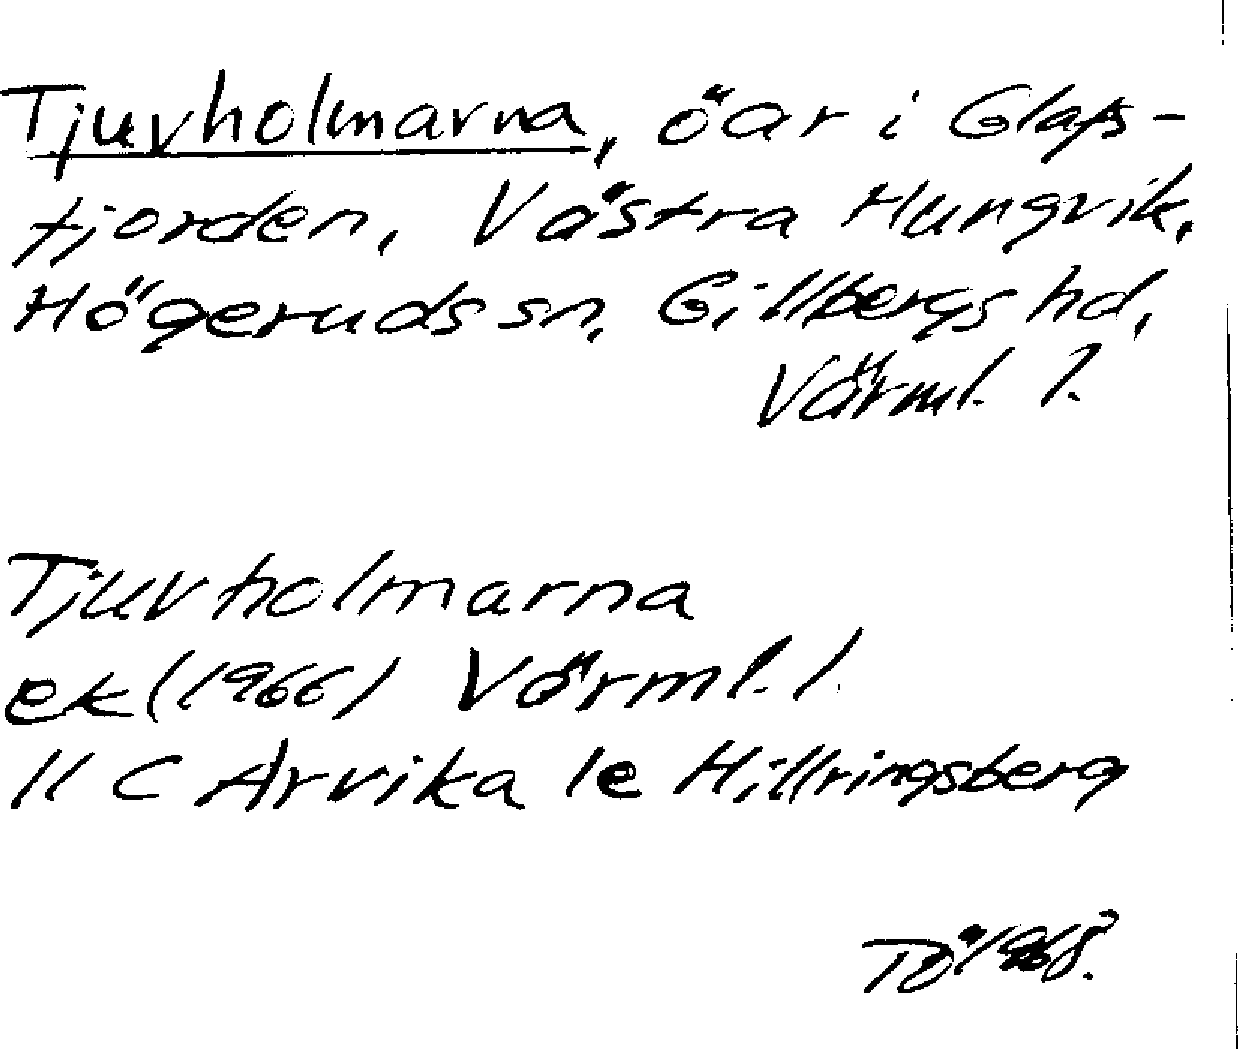 Tjuvholmarna, öar i Glafs-
fjorden, Västra Hungvik,
Högeruds sn, Gillbergs hd,
Värml. l.
Tjuvholmarna
ek (1966) Värml. l.
11 C Arvika 1e Hillringsberg
TÖ 1968.